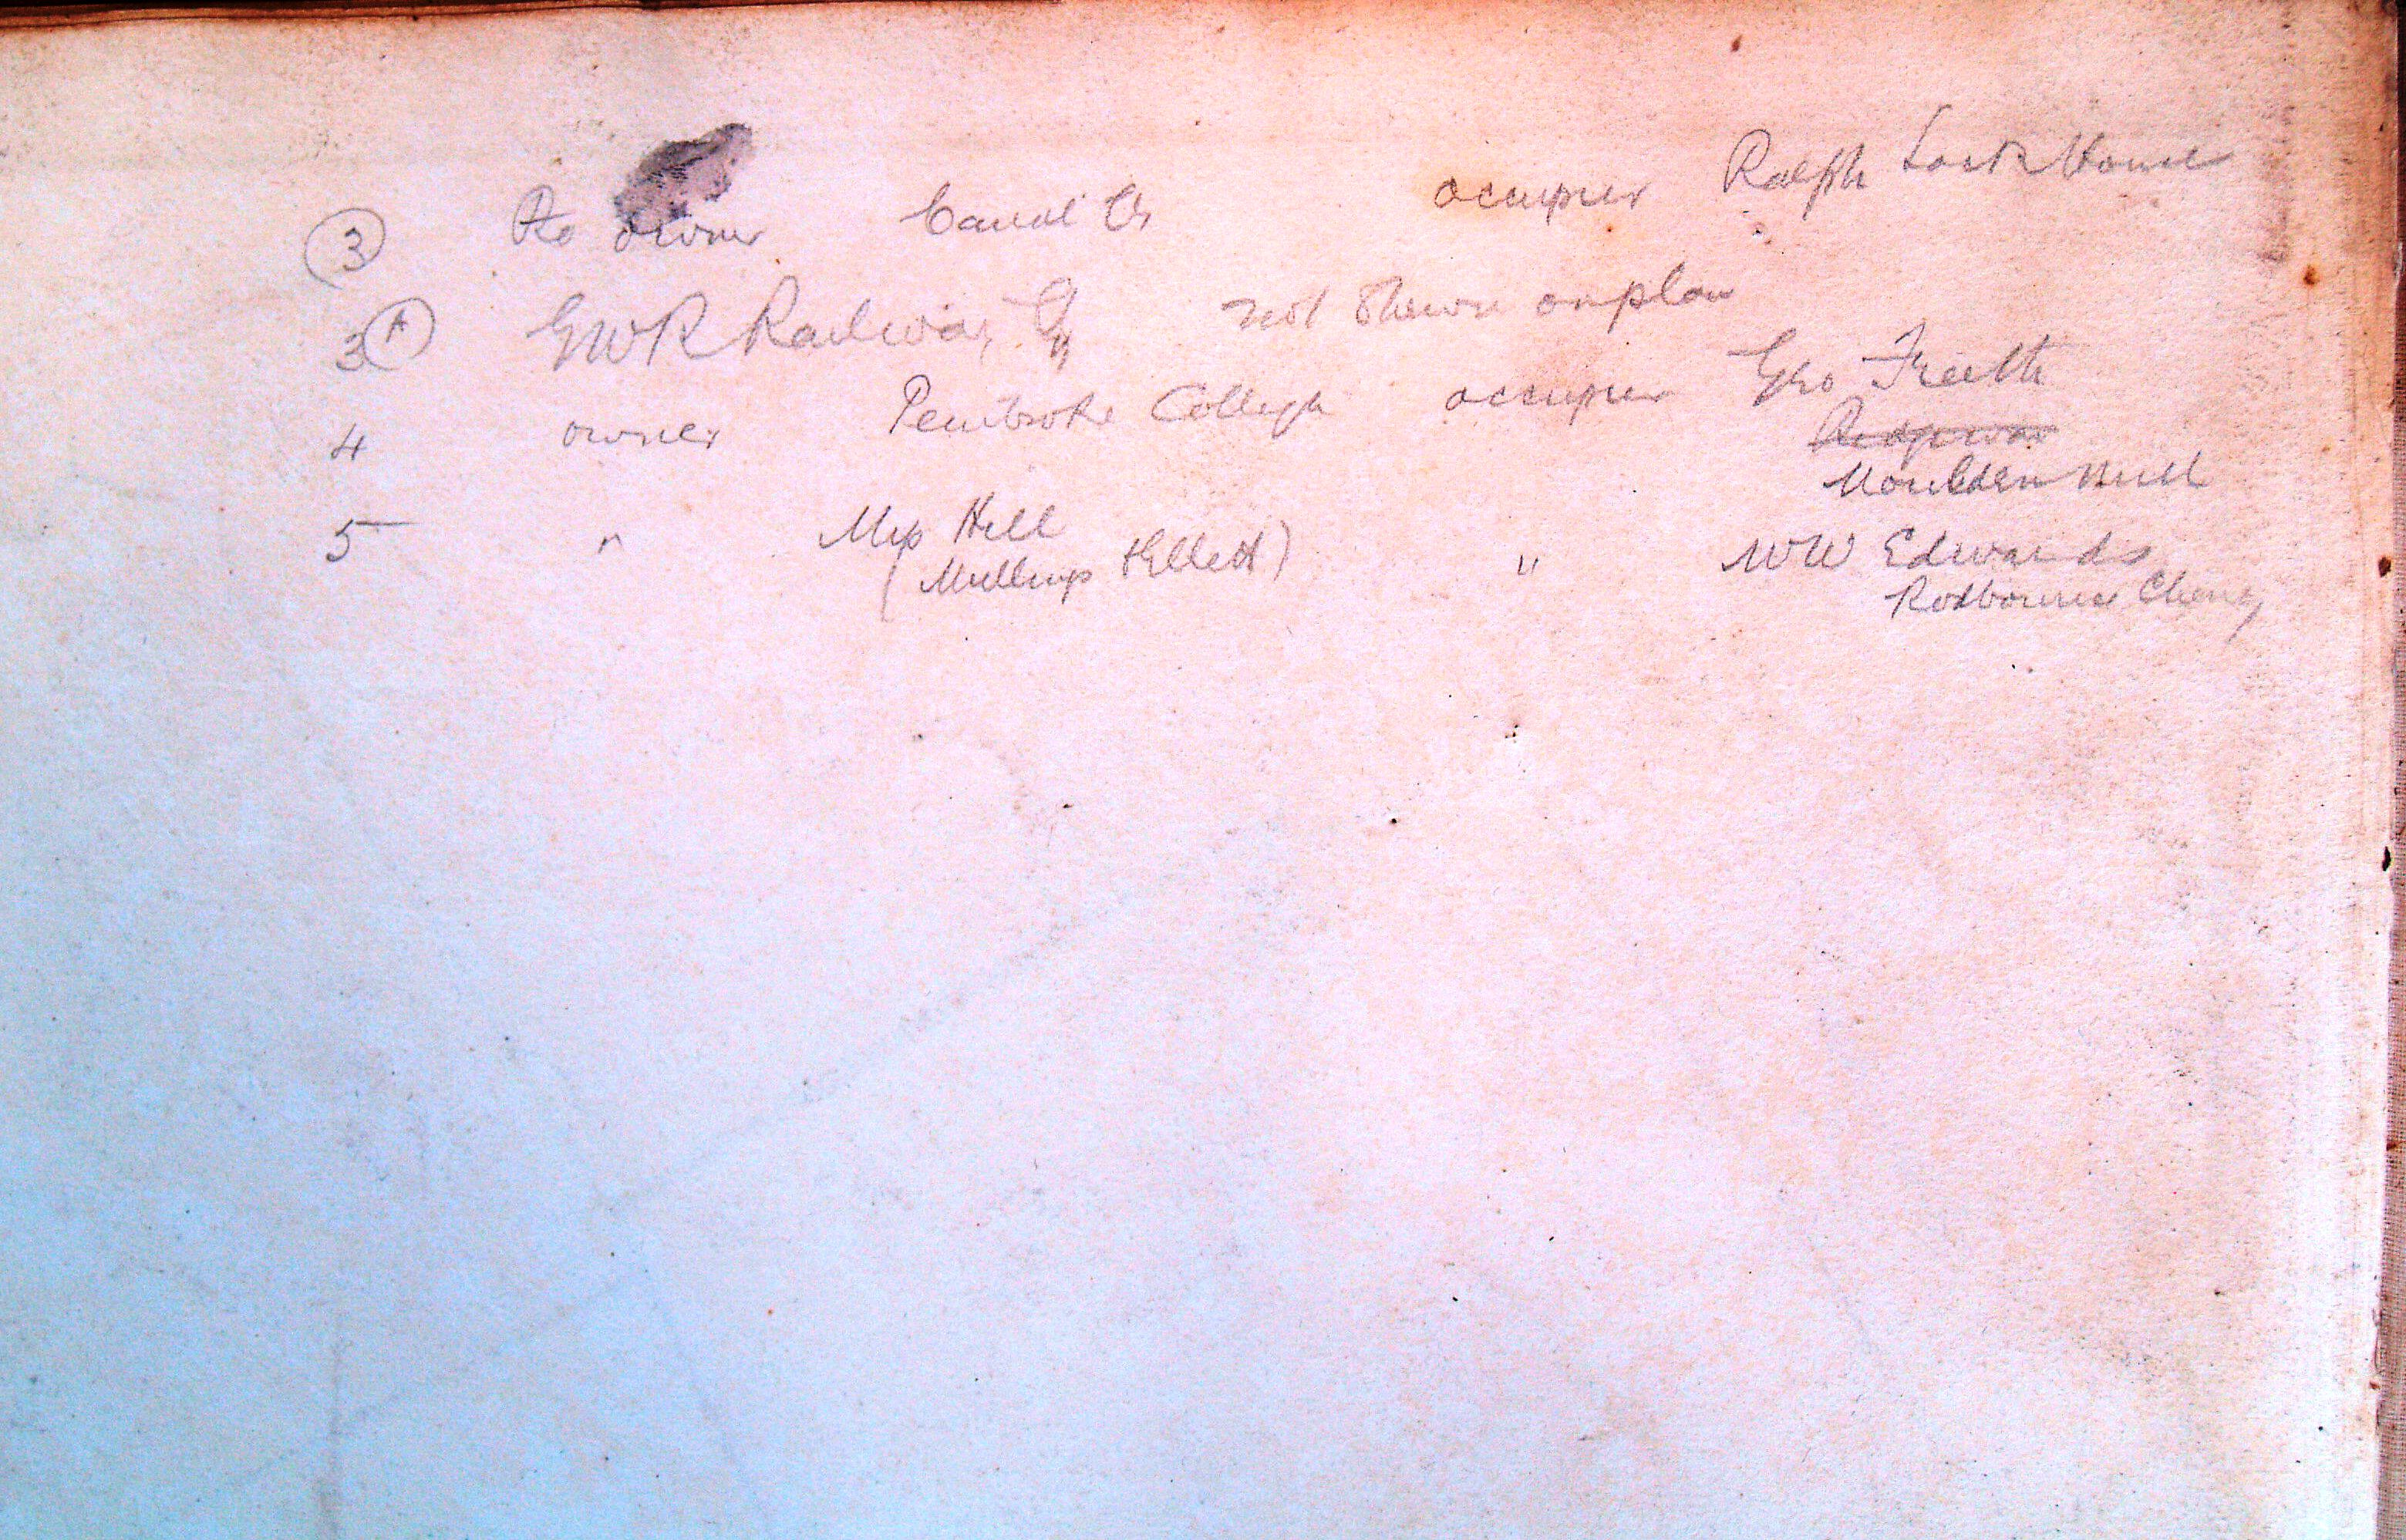 ③ Re owner Canal Co occupier Ralph Lock House
3 Ⓐ GWR Railway Co not shewn on plan
4 owner Pembroke College occupier Geo Freeth
Ridgeway
Moulden Hill
5 " Miss Hill " WW Edwards
(Mullings Ellett) Rodbourne Cheney